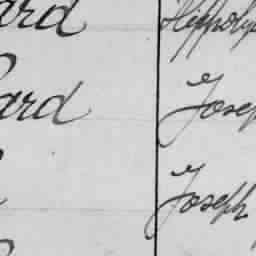 ard Hippoly
ard Josep
Joseph